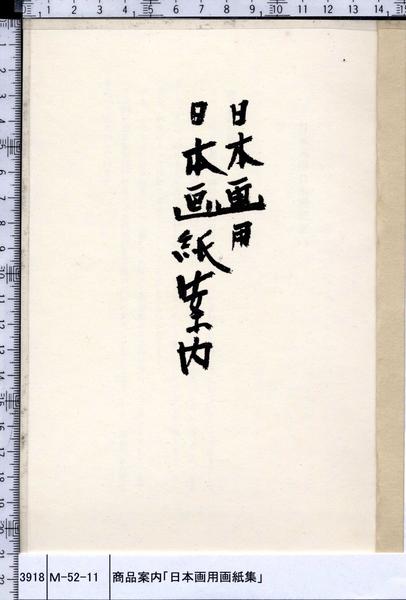 日本画用
日本画紙案内
3918 M-52-11 商品案内「日本画用画紙集」